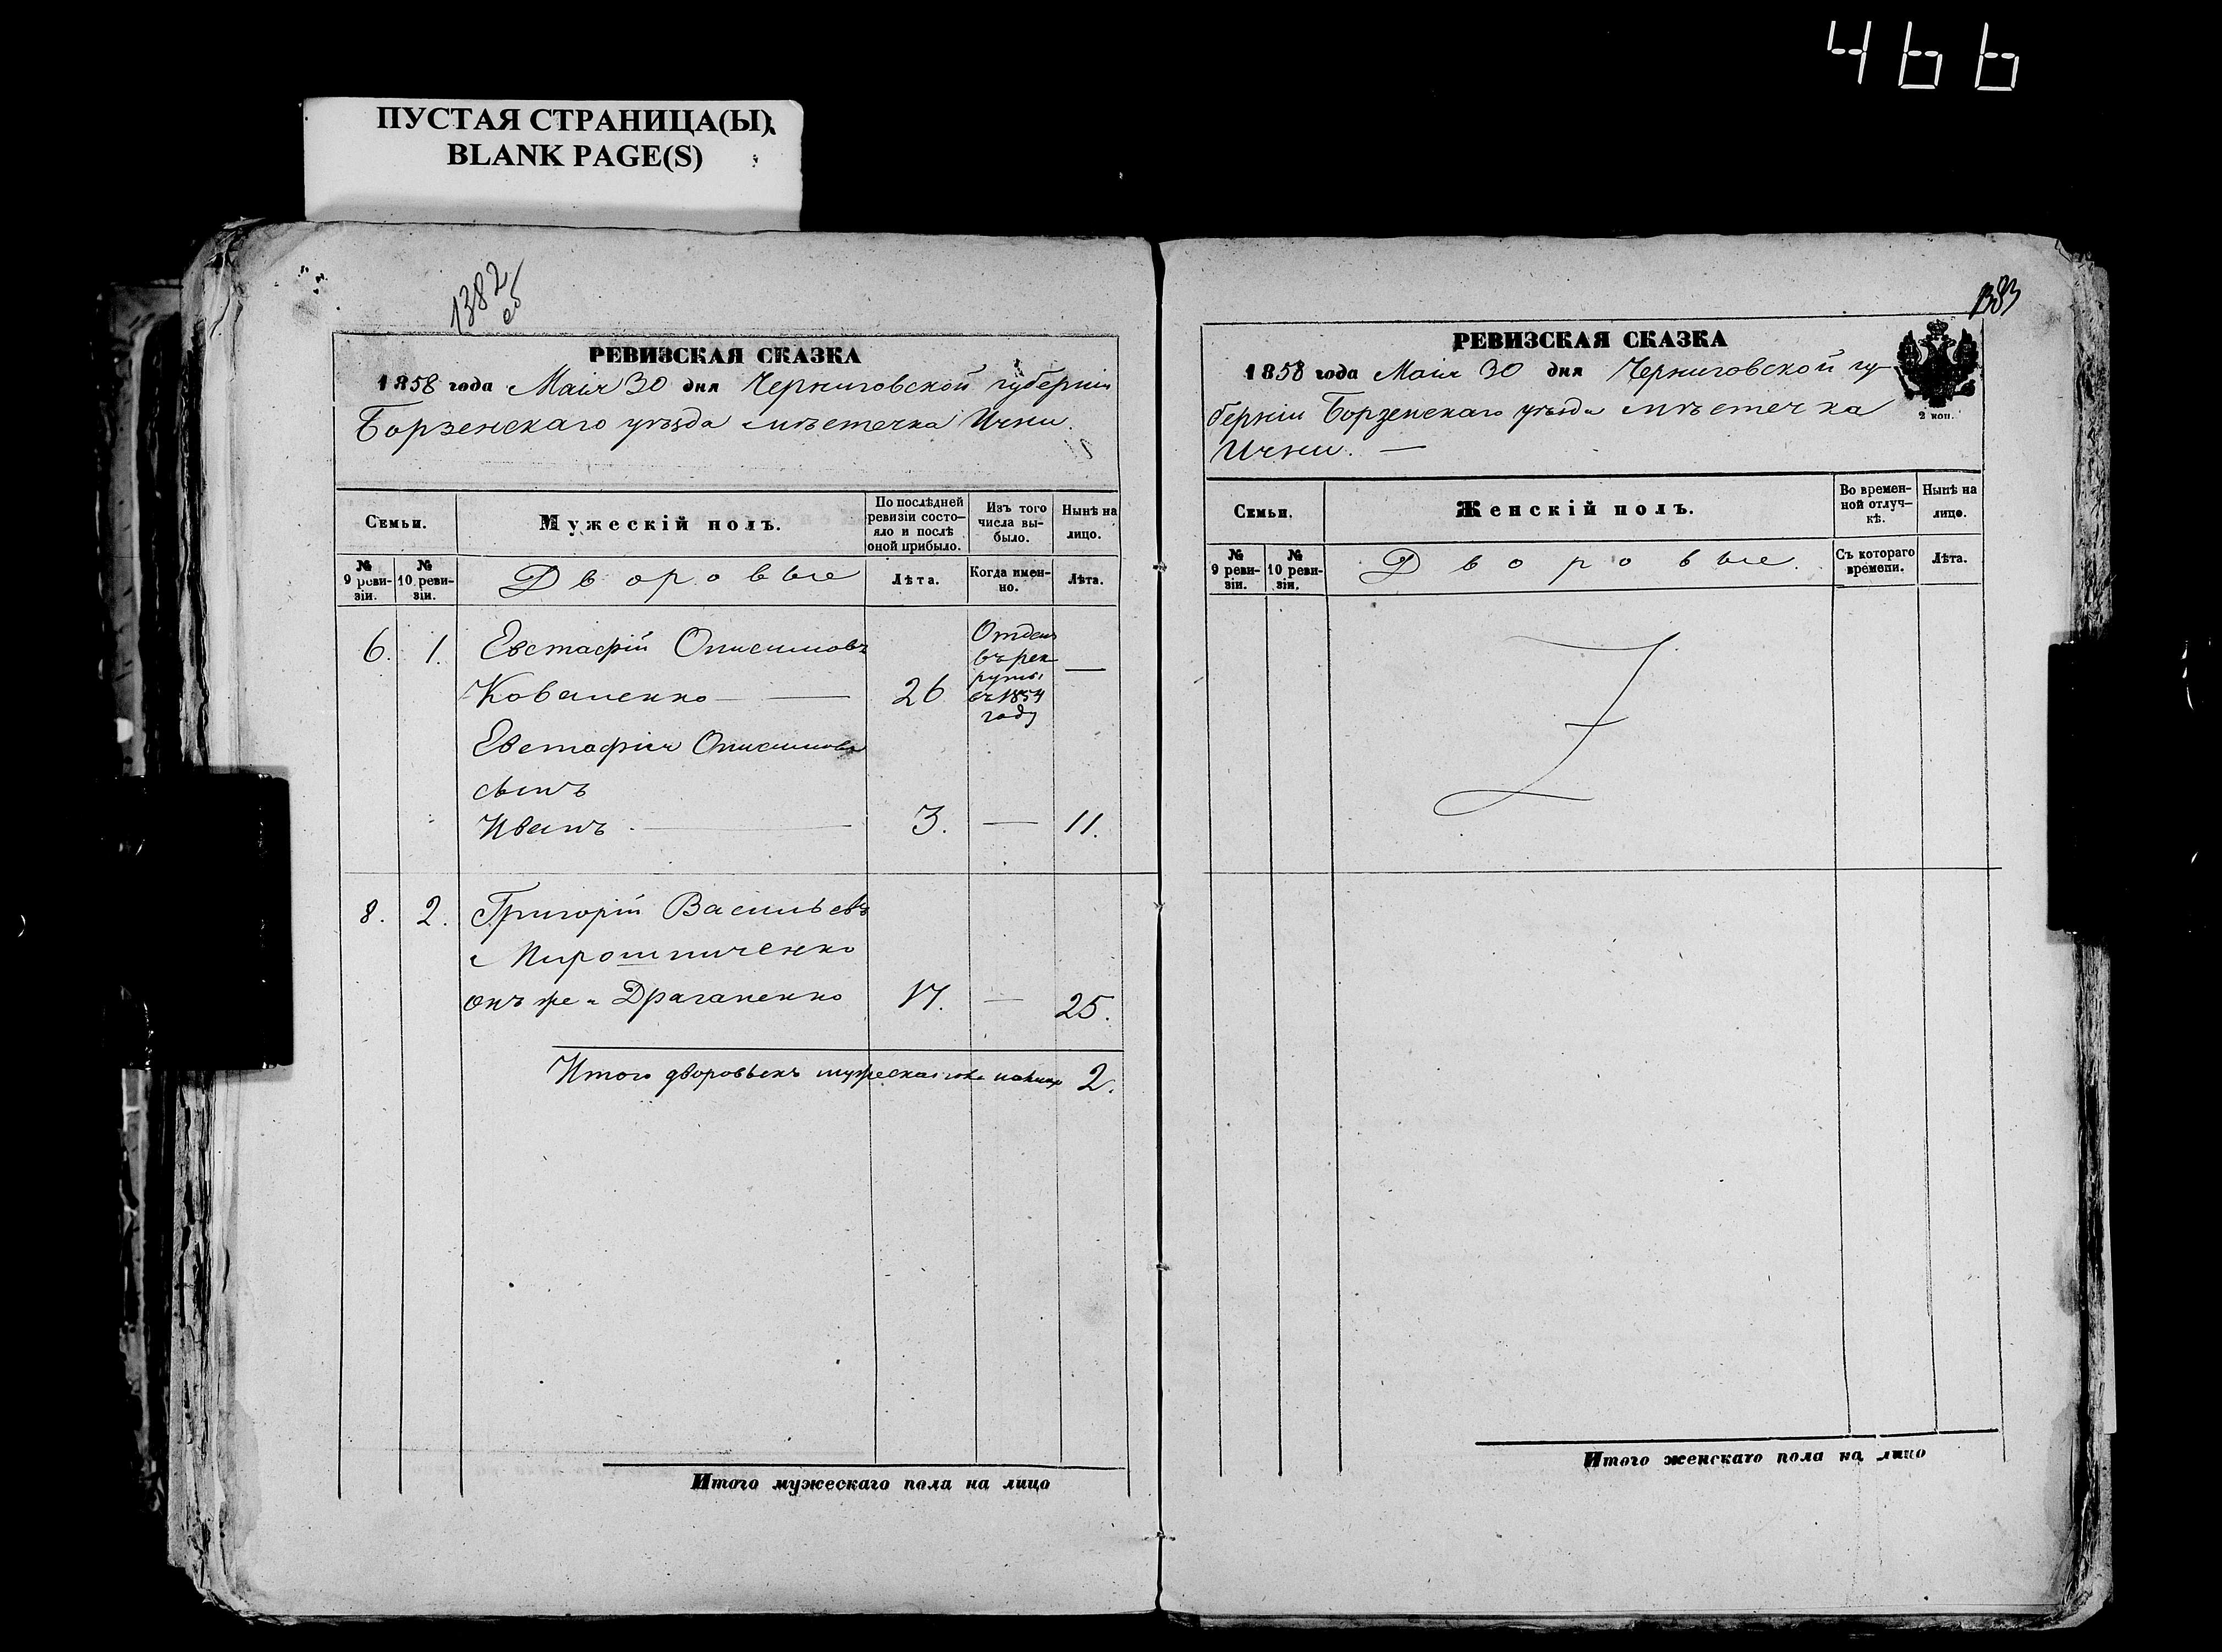 466
ПУСТАЯ СТРАНИЦА(Ы)
BLANK PAGE(S)
1382
об
РЕВИЗСКАЯ СКАЗКА
1858 года Маія 30 дня Черниговской губерніи
Борзенскаго уѣзда мѣстечка Ични.
Семьи.
Мужескій полъ.
По послѣдней ревизіи состо-
яло и послѣ
оной прибыло.
Изъ того
числа вы-
было.
Нынѣ на
лицо.
№
9 реви-
зіи.
№
10 реви-
зіи.
Дворовые
Лѣта.
Когда имен-
но.
Лѣта.
6. 1. Евстафій Онисимовъ
Коваленко — 26
Отданъ
въ рек
руты
въ 1854
году
—
Евстафія Онисимова
сынъ
Иванъ — 3. — 11.
8. 2. Григорій Васильевъ
Мирошниченко
онъ же Драганенко 17. — 25.
Итого дворовыхъ мужеска пола на лицо 2.
Итого мужескаго пола на лицо
1383
РЕВИЗСКАЯ СКАЗКА
1858 года Маія 30 дня Черниговской гу-
берніи Борзенскаго уѣзда мѣстечка
Ични. —
2 коп.
Семьи.
Женскій полъ.
Во времен-
ной отлуч-
кѣ.
Нынѣ на
лицо.
№
9 реви-
зіи.
№
10 реви-
зіи.
Дворовые.
Съ котораго
времени.
Лѣта.
Итого женскаго пола на лицо